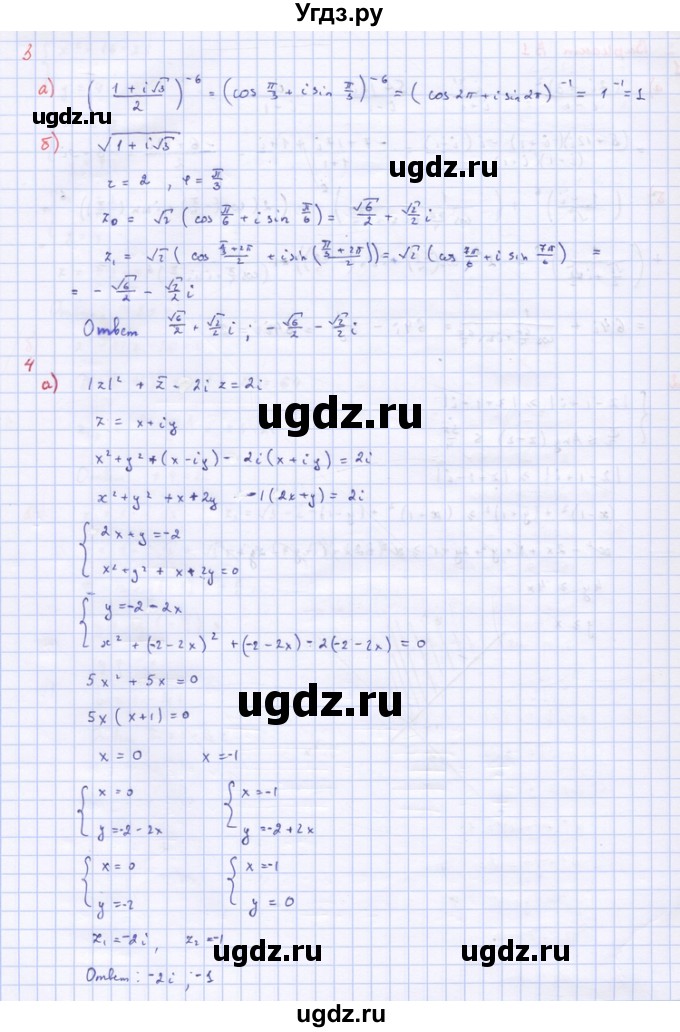 Угдз.ру
3
а) ( (1 + i√3)/2 )^-6 = (cos π/3 + i sin π/3)^-6 = ( cos 2π + i sin 2π )^-1 = 1^-1 = 1
ugdz.ru
ugdz.ru
б) √(1 + i√3)
r = 2 , φ = π/3
z₀ = √2 ( cos π/6 + i sin π/6 ) = √6/2 + √2/2 i
z₁ = √2 ( cos (π/3 + 2π)/2 + i sin ((π/3 + 2π)/2)) = √2 ( cos 7π/6 + i sin 7π/6 ) =
ugdz.ru
ugdz.ru
= - √6/2 - √2/2 i
Ответ √6/2 + √2/2 i ; - √6/2 - √2/2 i
4
а) |z|² + z̄ - 2i z = 2i
ugdz.ru
z = x + iy
x² + y² + (x - iy) - 2i (x + iy) = 2i
x² + y² + x + 2y - i (2x + y) = 2i
ugdz.ru
ugdz.ru
{ 2x + y = -2
x² + y² + x + 2y = 0
{ y = -2 - 2x
x² + (-2 - 2x)² + (-2 - 2x) - 2(-2 - 2x) = 0
5x² + 5x = 0
ugdz.ru
5x ( x + 1 ) = 0
x = 0 x = -1
ugdz.ru
ugdz.ru
{ x = 0 { x = -1
y = -2 - 2x y = -2 + 2x
{ x = 0 { x = -1
y = -2 y = 0
z₁ = -2i , z₂ = -1
ugdz.ru
ugdz.ru
Ответ : -2i ; -1
ugdz.ru